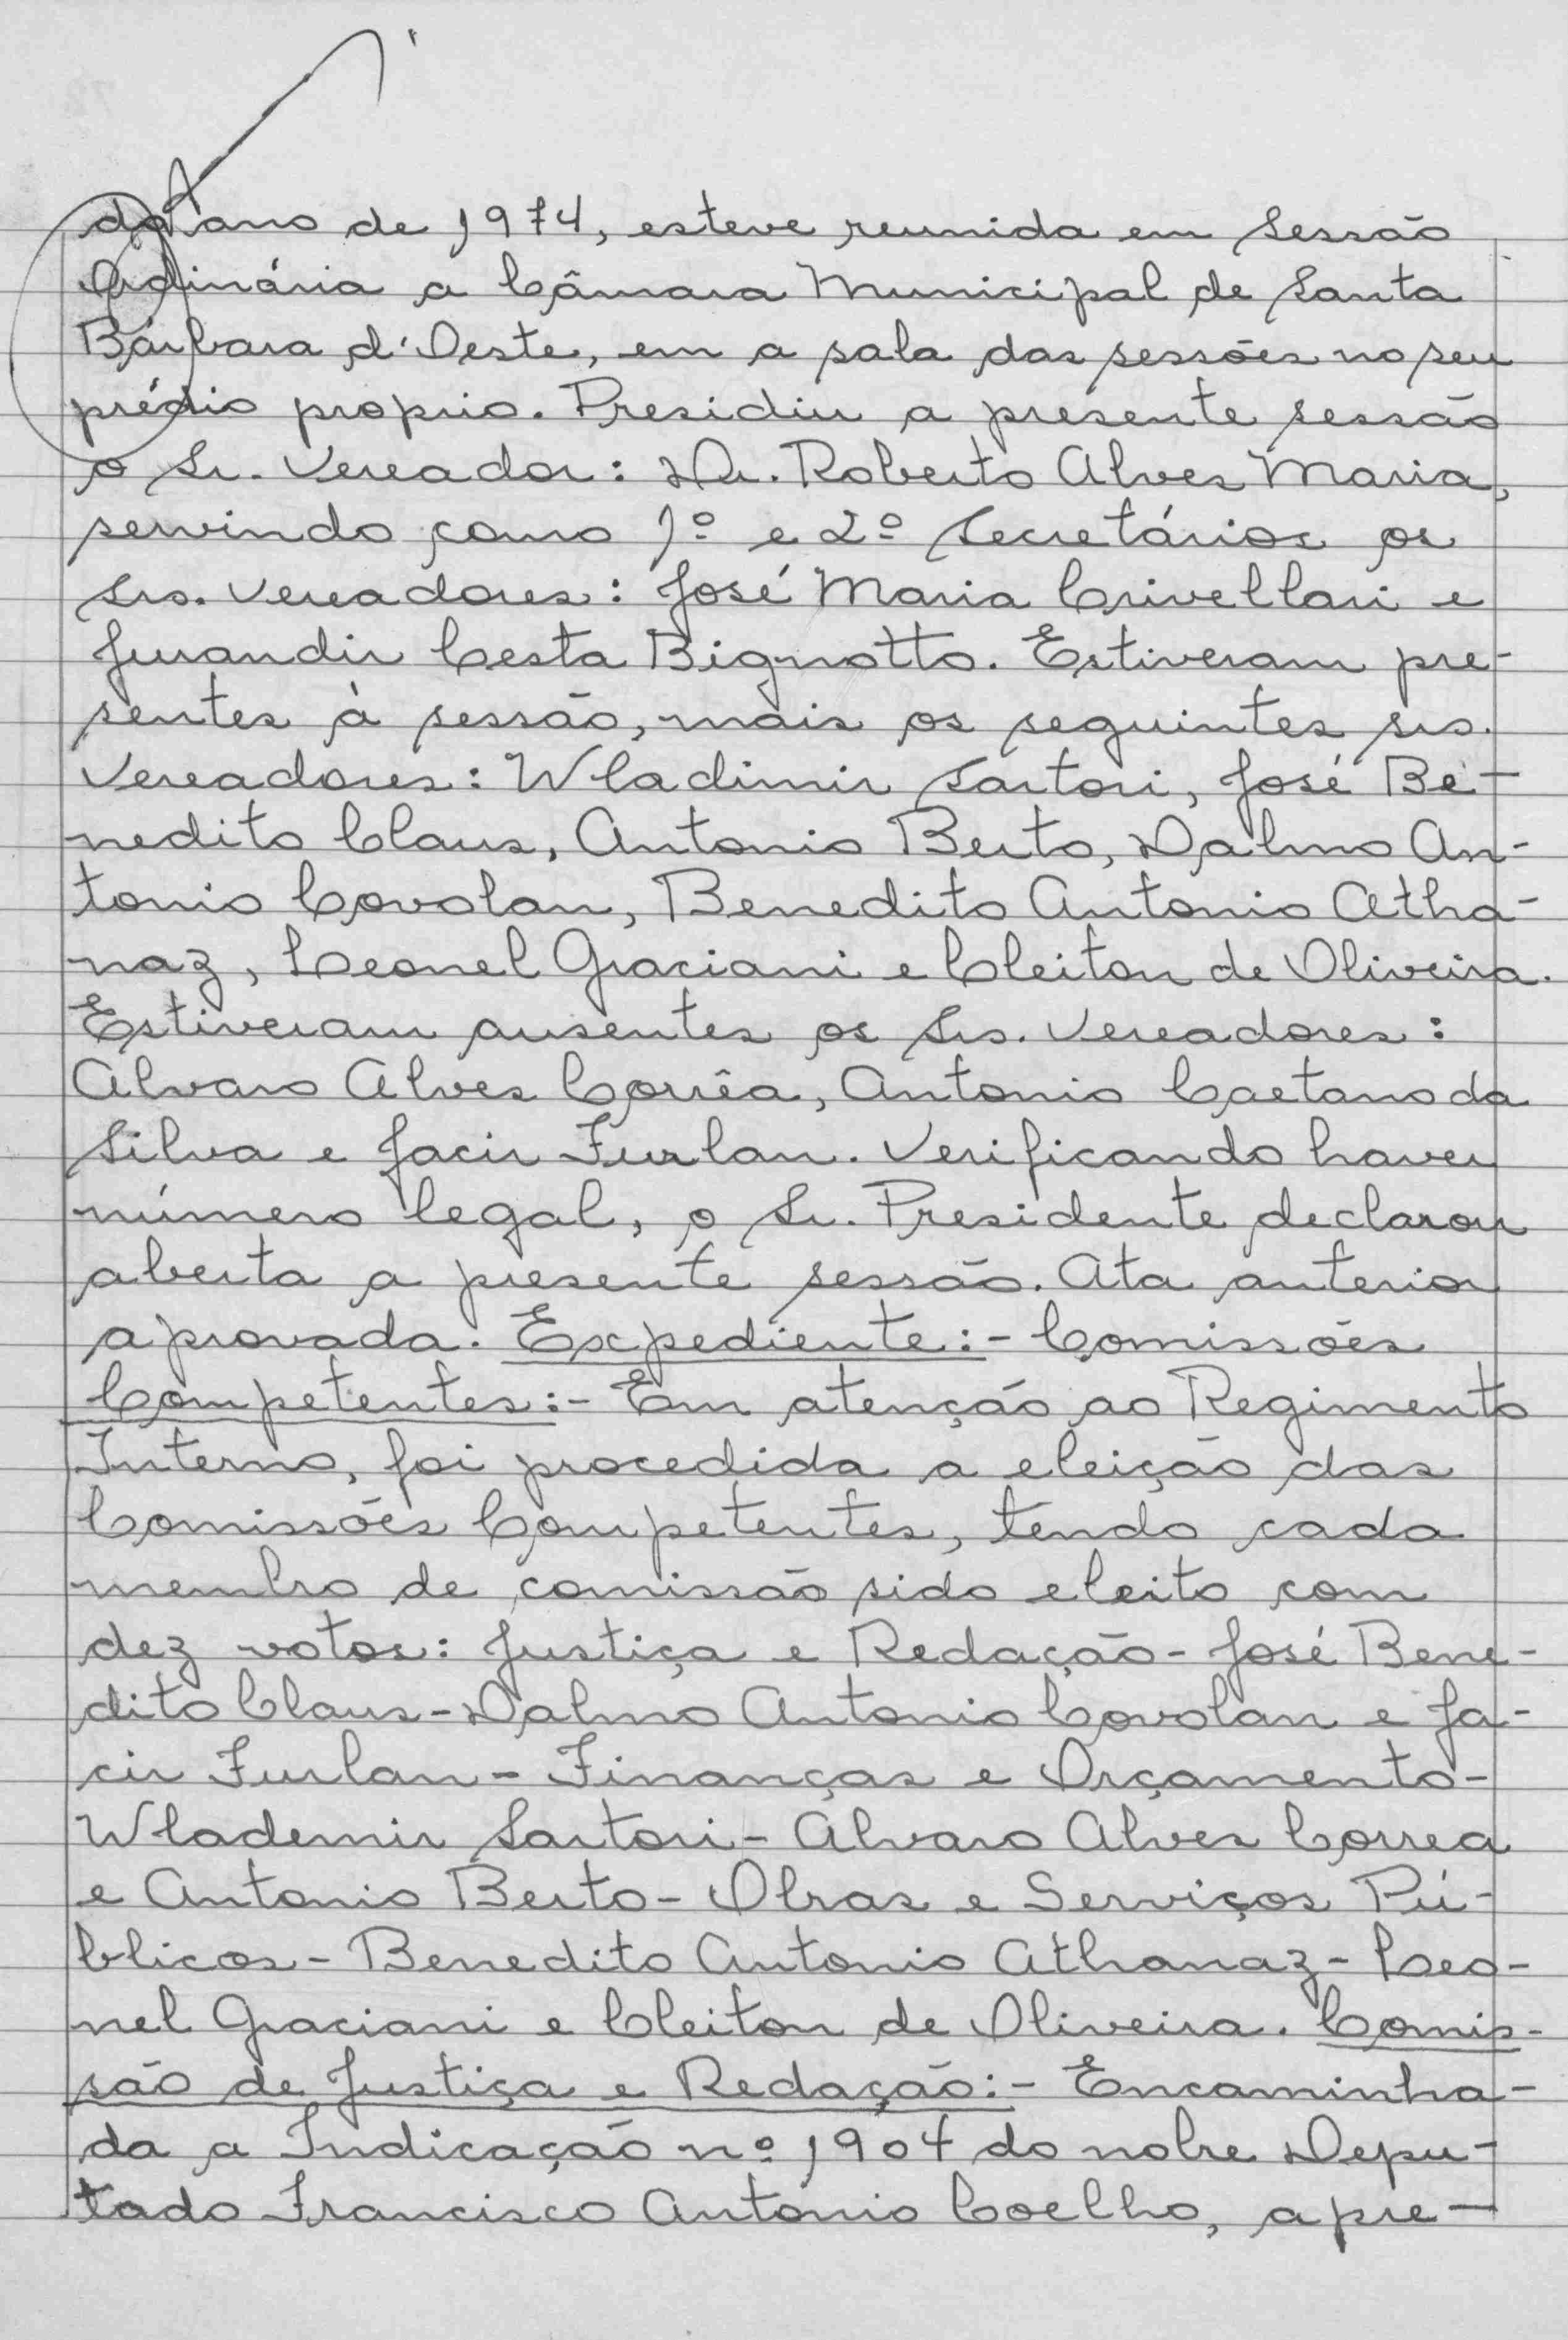 do ano de 1974, esteve reunida em Sessão
Ordinária a Câmara Municipal de Santa
Bárbara d'Oeste, em a sala das sessões no seu
prédio proprio. Presidiu a presente sessão
o Sr. Vereador: Dr. Roberto Alves Maria,
servindo como 1º e 2º Secretários os
Srs. Vereadores: José Maria Crivellari e
Jurandir Cesta Bignotto. Estiveram pre-
sentes à sessão, mais os seguintes srs.
Vereadores: Wladimir Sartori, José Be-
nedito Claus, Antonio Berto, Dalmo An-
tonio Covolan, Benedito Antonio Atha-
naz, Leonel Graciani e Cleiton de Oliveira.
Estiveram ausentes os Srs. Vereadores:
Alvaro Alves Corrêa, Antonio Caetano da
Silva e Jacir Furlan. Verificando haver
número legal, o Sr. Presidente declarou
aberta a presente sessão. Ata anterior
aprovada. Expediente:- Comissões
Competentes:- Em atenção ao Regimento
Interno, foi procedida a eleição das
Comissões Competentes, tendo cada
membro de comissão sido eleito com
dez votos: Justiça e Redação- José Bene-
dito Claus-Dalmo Antonio Covolan e Ja-
cir Furlan- Finanças e Orçamento-
Wlademir Sartori- Alvaro Alves Correa
e Antonio Berto- Obras e Serviços Pú-
blicos- Benedito Antonio Athanaz- Leo-
nel Graciani e Cleiton de Oliveira. Comis-
são de Justiça e Redação:- Encaminha-
da a Indicação nº 1904 do nobre Depu-
tado Francisco Antonio Coelho, apre-